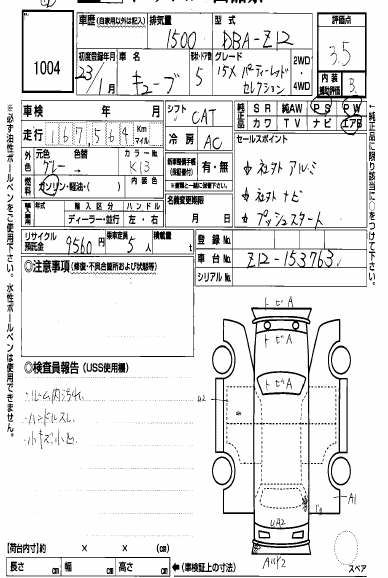 1004
車歴 (自家用以外は記入)
排気量
1500
型式
DBA-Z12
評価点
3.5
初度登録年月
23/1月
車名
キューブ
ドア数
5
グレード
15X
セレクション
2WD
4WD
内装
補助評価
B
車検 年 月
走行 167,564 Km マイル
シフト
CAT
冷房
AC
純正品
SR 純AW PS PW
カワ TV ナビ エアB
外色
元色 色替
グレー
カラーNo.
K13
内装色
燃料
ガソリン・軽油・( )
有・無
輸入車
年式
輸入区分
ハンドル
ディーラー・並行
左・右
名義変更期限
月 日
セールスポイント
社外アルミ
社外ナビ
プッシュスタート
リサイクル預託金
9560円
乗車定員
5人
積載量
t
登録No.
車台No.
Z12-153763
シリアルNo.
◎注意事項 (修復・不具合箇所および状態等)
◎検査員報告 (USS使用欄)
・ルーム内汚れ
・ハンドルスレ
・小キズ小凹
トビA
トビA
トビA
U2
A1
UA2
【荷台内寸】約 × × (cm)
長さ cm 幅 cm 高さ cm
←(車検証上の寸法)
スペア
※必ず油性ボールペンをご使用下さい。水性ボールペンは使用できません。
←純正品に限り該当に○をつけて下さい。